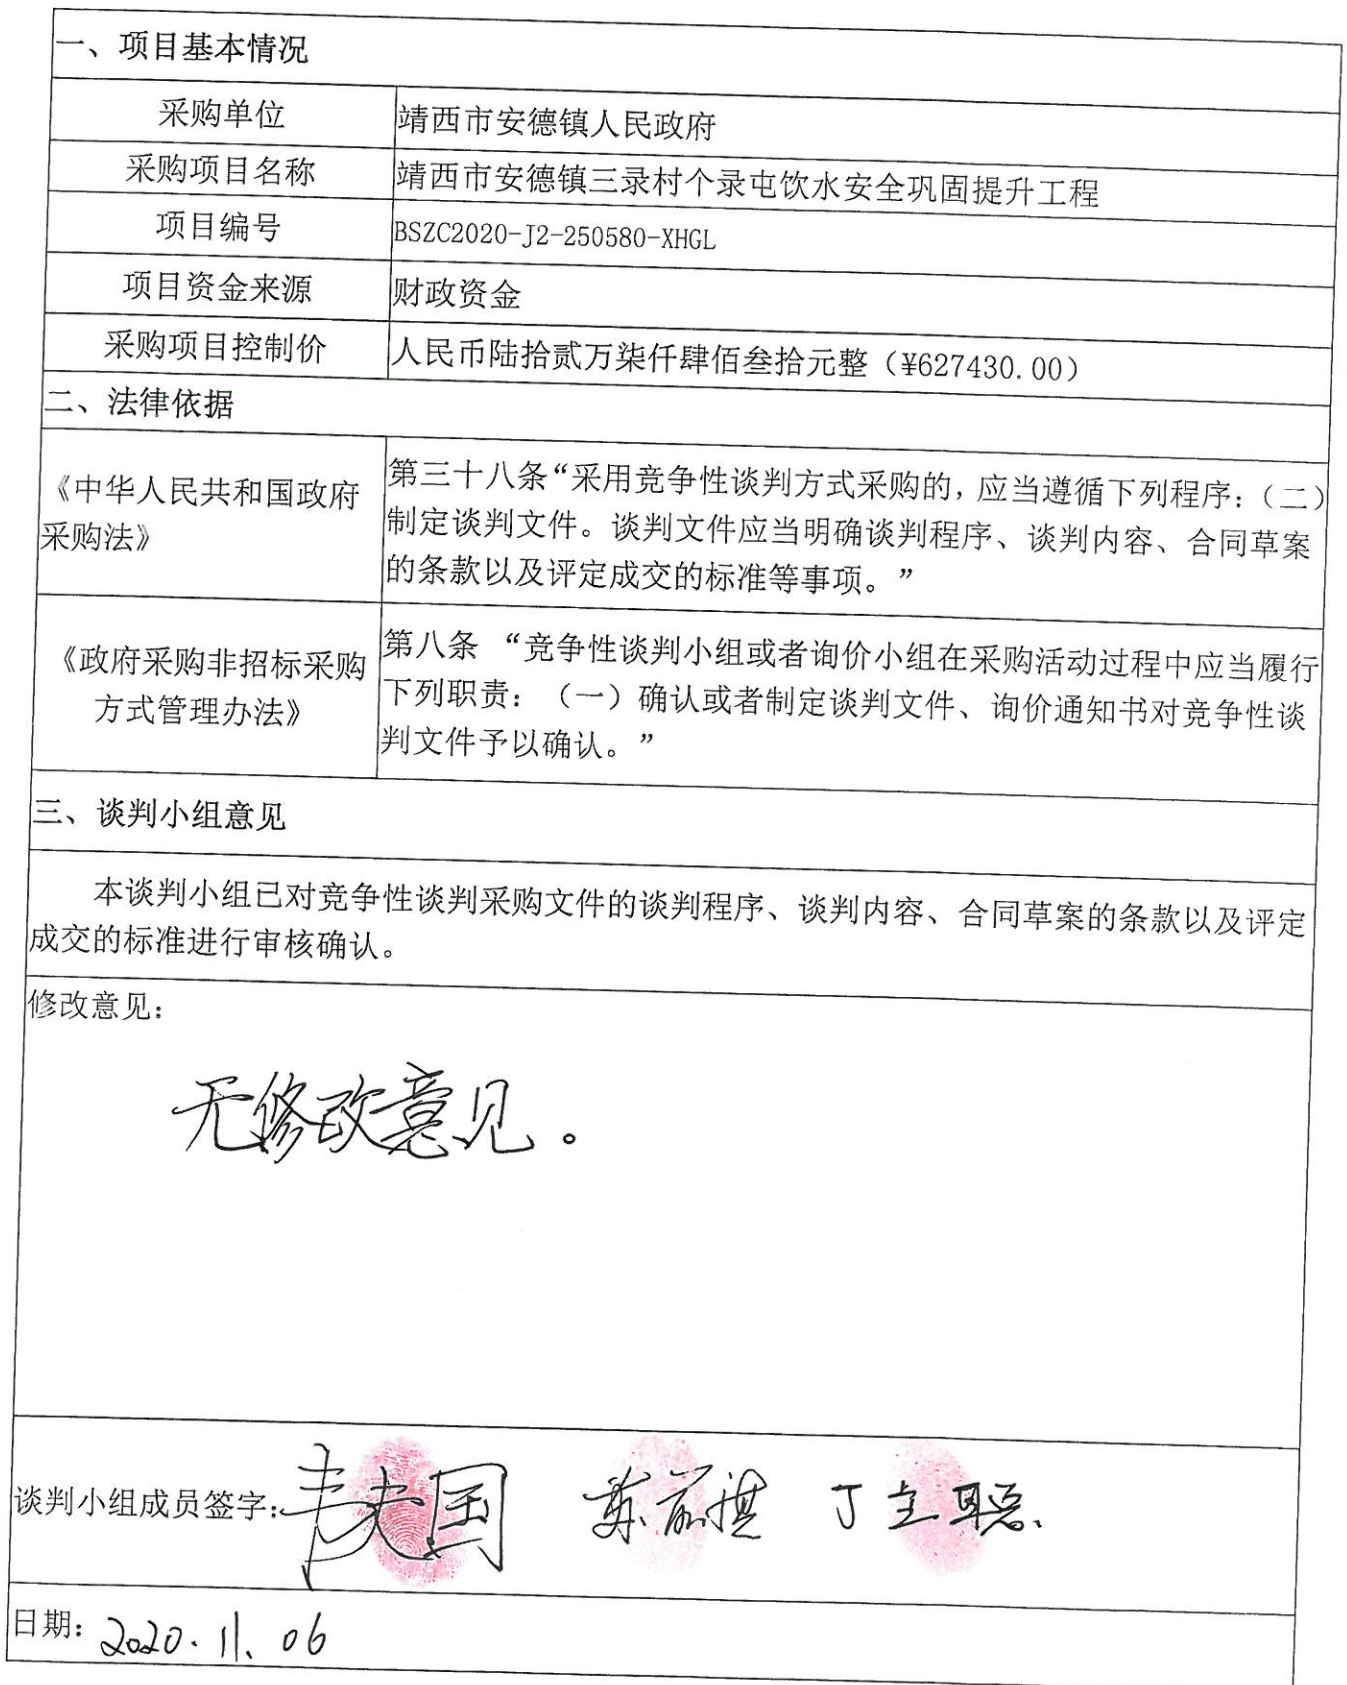 一、项目基本情况
采购单位 靖西市安德镇人民政府
采购项目名称 靖西市安德镇三录村个录屯饮水安全巩固提升工程
项目编号 BSZC2020-J2-250580-XHGL
项目资金来源 财政资金
采购项目控制价 人民币陆拾贰万柒仟肆佰叁拾元整（¥627430.00）
二、法律依据
《中华人民共和国政府
采购法》
第三十八条“采用竞争性谈判方式采购的，应当遵循下列程序：（二）
制定谈判文件。谈判文件应当明确谈判程序、谈判内容、合同草案
的条款以及评定成交的标准等事项。”
《政府采购非招标采购
方式管理办法》
第八条 “竞争性谈判小组或者询价小组在采购活动过程中应当履行
下列职责：（一）确认或者制定谈判文件、询价通知书对竞争性谈
判文件予以确认。”
三、谈判小组意见
本谈判小组已对竞争性谈判采购文件的谈判程序、谈判内容、合同草案的条款以及评定
成交的标准进行审核确认。
修改意见：
无修改意见。
谈判小组成员签字：
日期：2020.11.06